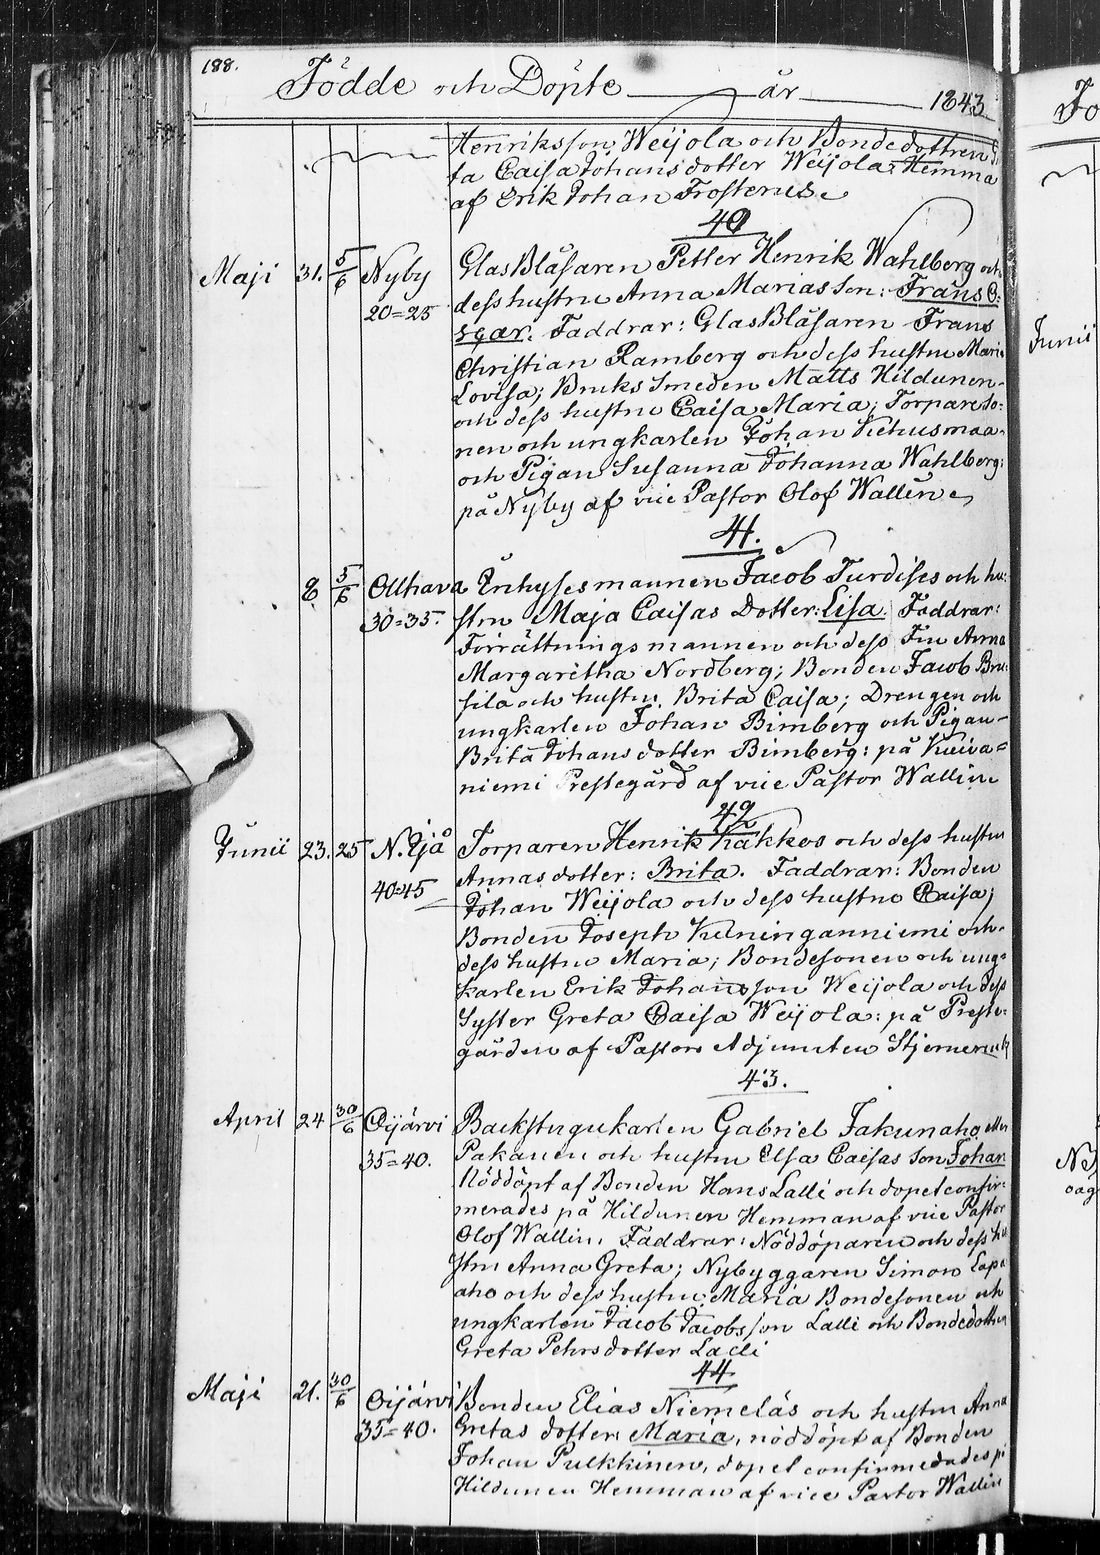 188. Födde och Döpte år 1843.
Henriksson Weijola och Bondedottren
ta Caisa Johansdotter Weijola: Hemma
af Erik Johan Frosterus.
40
Maji 31. 5/6 Nyby GlasBläsaren Petter Henrik Wahlberg och
20=25 dess hustru Anna Marias Son: Frans O=
scar. Faddrar: GlasBläsaren Frans
Christian Ramberg och dess hustru Maria
Lovisa; Bruks Smeden Matts Hildunen
och dess hustru Caisa Maria; Torpareso=
nen och ungkarlen Johan
och Pigan Susanna Johanna Wahlberg:
på Nyby af vice Pastor Olof Wallin
41.
8 5/6 Ollhava Inhysesmannen Jacob Turdises och hu=
30=35. strn Maja Caisas Dotter: Lisa. Faddrar:
Förrättningsmannen och dess Fru Anna
Margaretha Nordberg; Bonden Jacob Bru=
sila och hustru Brita Caisa; Drengen och
ungkarlen Johan Bimberg och Pigan
Brita Johansdotter Bimberg: på Kuiva=
niemi Prestegård af vice Pastor Wallin
42
Junii 23. 25 N. Ijå Torparen Henrik Kakkos och dess hustru
40=45 Annas dotter: Brita. Faddrar: Bonden
Johan Weijola och dess hustru Caisa;
Bonden Joseph Kuninganniemi och
dess hustru Maria; Bondesonen och ung=
karlen Erik Johansson Weijola och dess
Syster Greta Caisa Weijola: på Preste=
gården af Pastors Adjuncten
43.
April 24 30/6 Oijärvi Backstugukarlen Gabriel Jakunaho eller
35=40. Pakanen och hustru Elsa Caisas Son Johan
Nöddöpt af Bonden Hans Lalli och dopet confir=
merades på Hildunen Hemman af vice Pastor
Olof Wallin. Faddrar: Nöddöparen och dess hu
strn Anna Greta; Nybyggaren Simon Lapi
aho och dess hustru Maria Bondesonen och
ungkarlen Jacob Jacobsson Lalli och Bondedottren
Greta Pehrsdotter Lalli
44
Maji 21. 30/6 Oijärvi Bonden Elias Niemeläs och hustru Anna
35=40. Gretas dotter: Maria, nöddöpt af Bonden
Johan Pulkkinen, dopet confirmerades på
Hildunen Hemman af vice Pastor Wallin
Fö
Junii